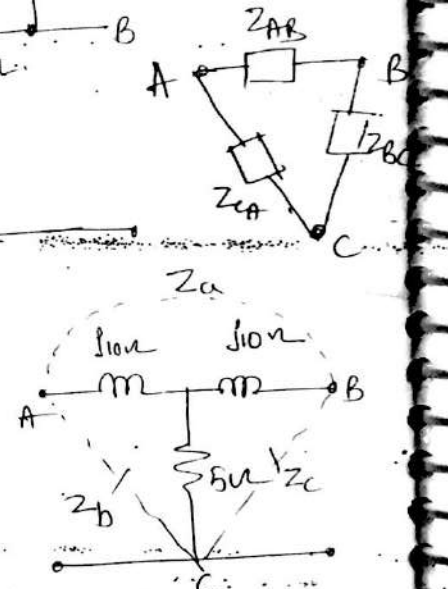 B
Z_AB
A
B
Z_BC
Z_CA
C
Z_a
j10Ω
j10Ω
A
B
5Ω
Z_c
Z_b
C